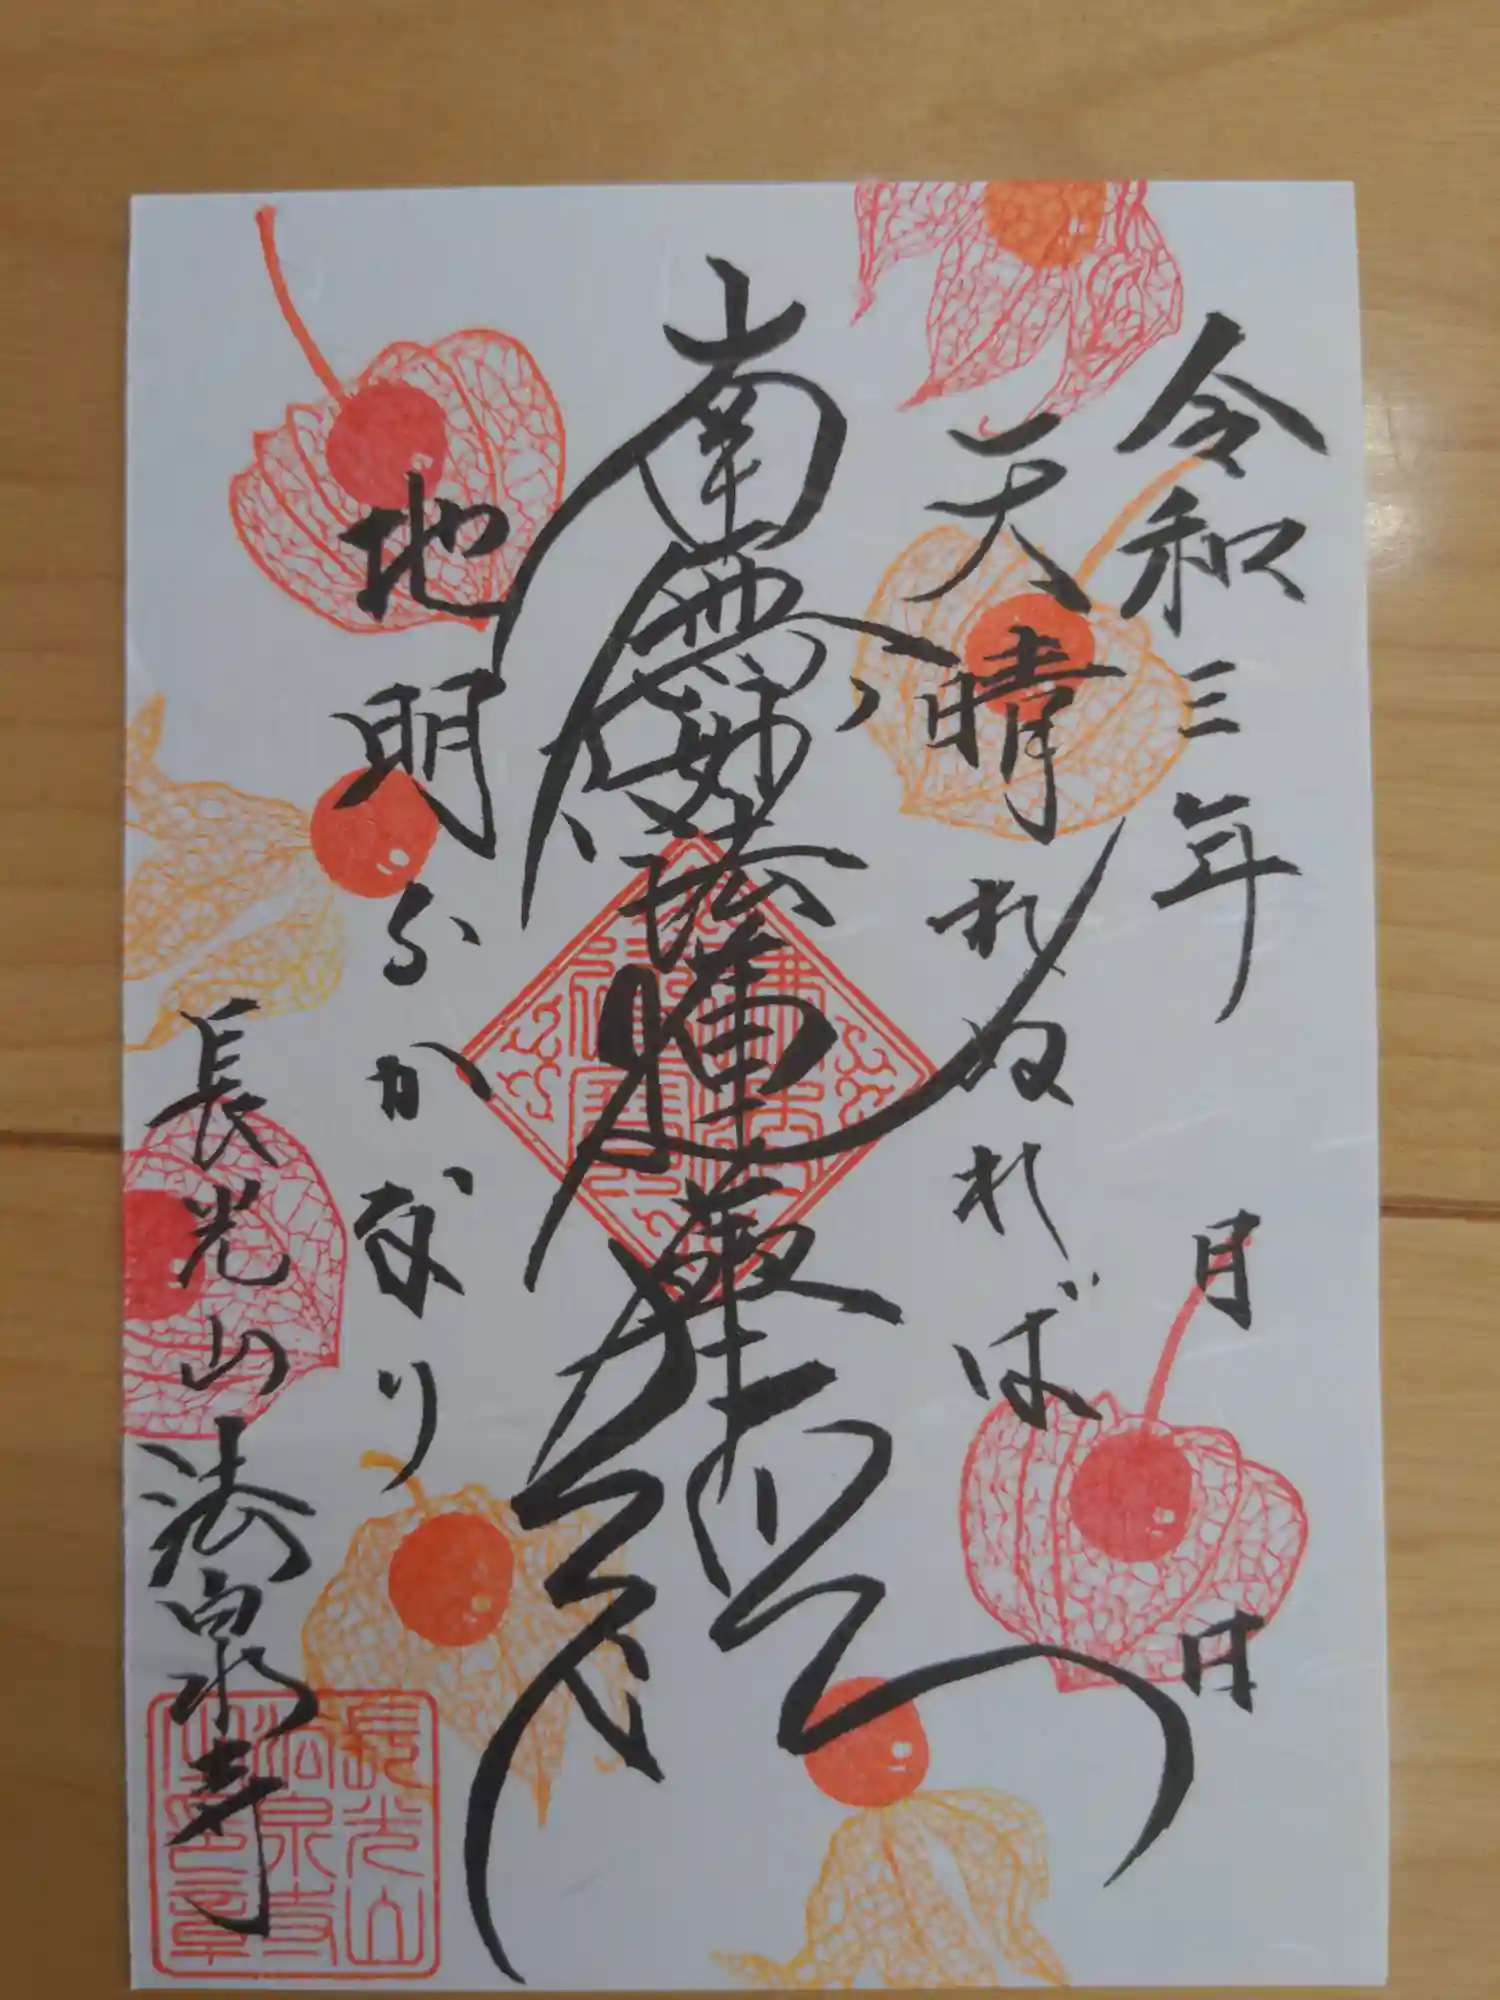 令和三年 月 日
天晴れぬれば
南無妙法蓮華経
地明らかなり
長光山 法泉寺
長光山法泉寺